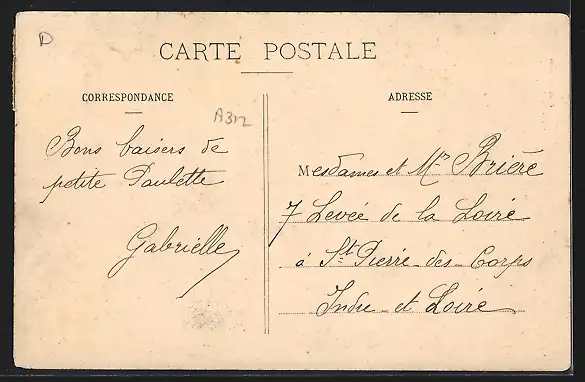 D
CARTE POSTALE
CORRESPONDANCE
A312
Bons baisers de
petite Paulette
Gabrielle
ADRESSE
Mesdames et Mr Brière
7 Levée de la Loire
à St Pierre-des-Corps
Indre-et-Loire